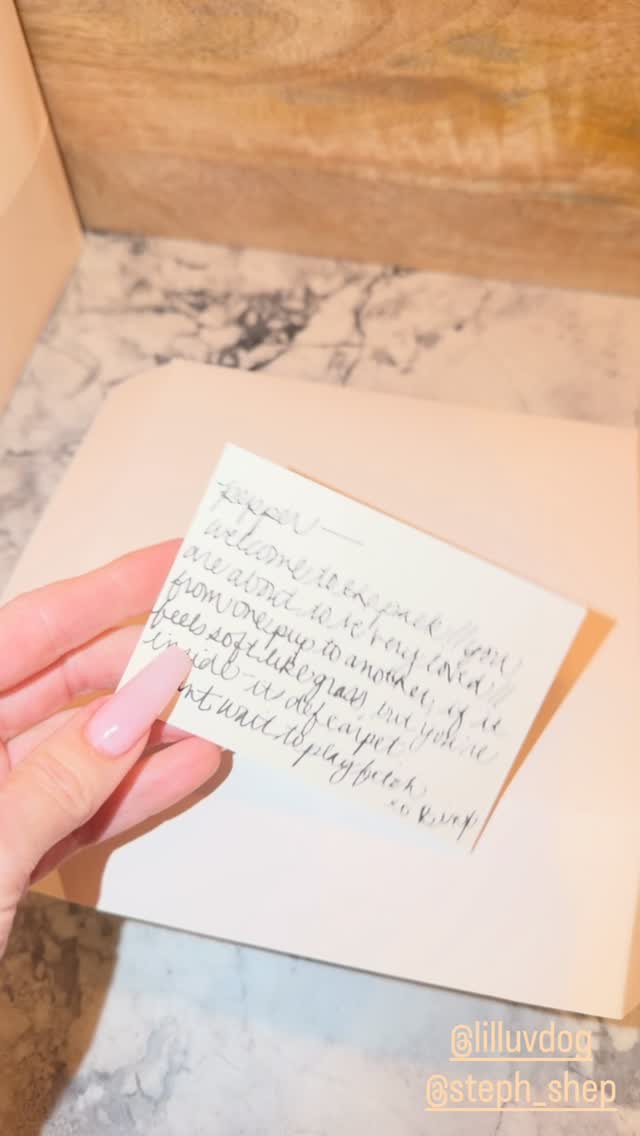 pepper —
welcome to the pack!! you
are about to be very loved!!!
from one pup to another, if it
feels soft like grass, but you're
inside - it's def carpet.
can't wait to play fetch,
xo
@lilluvdog
@steph_shep